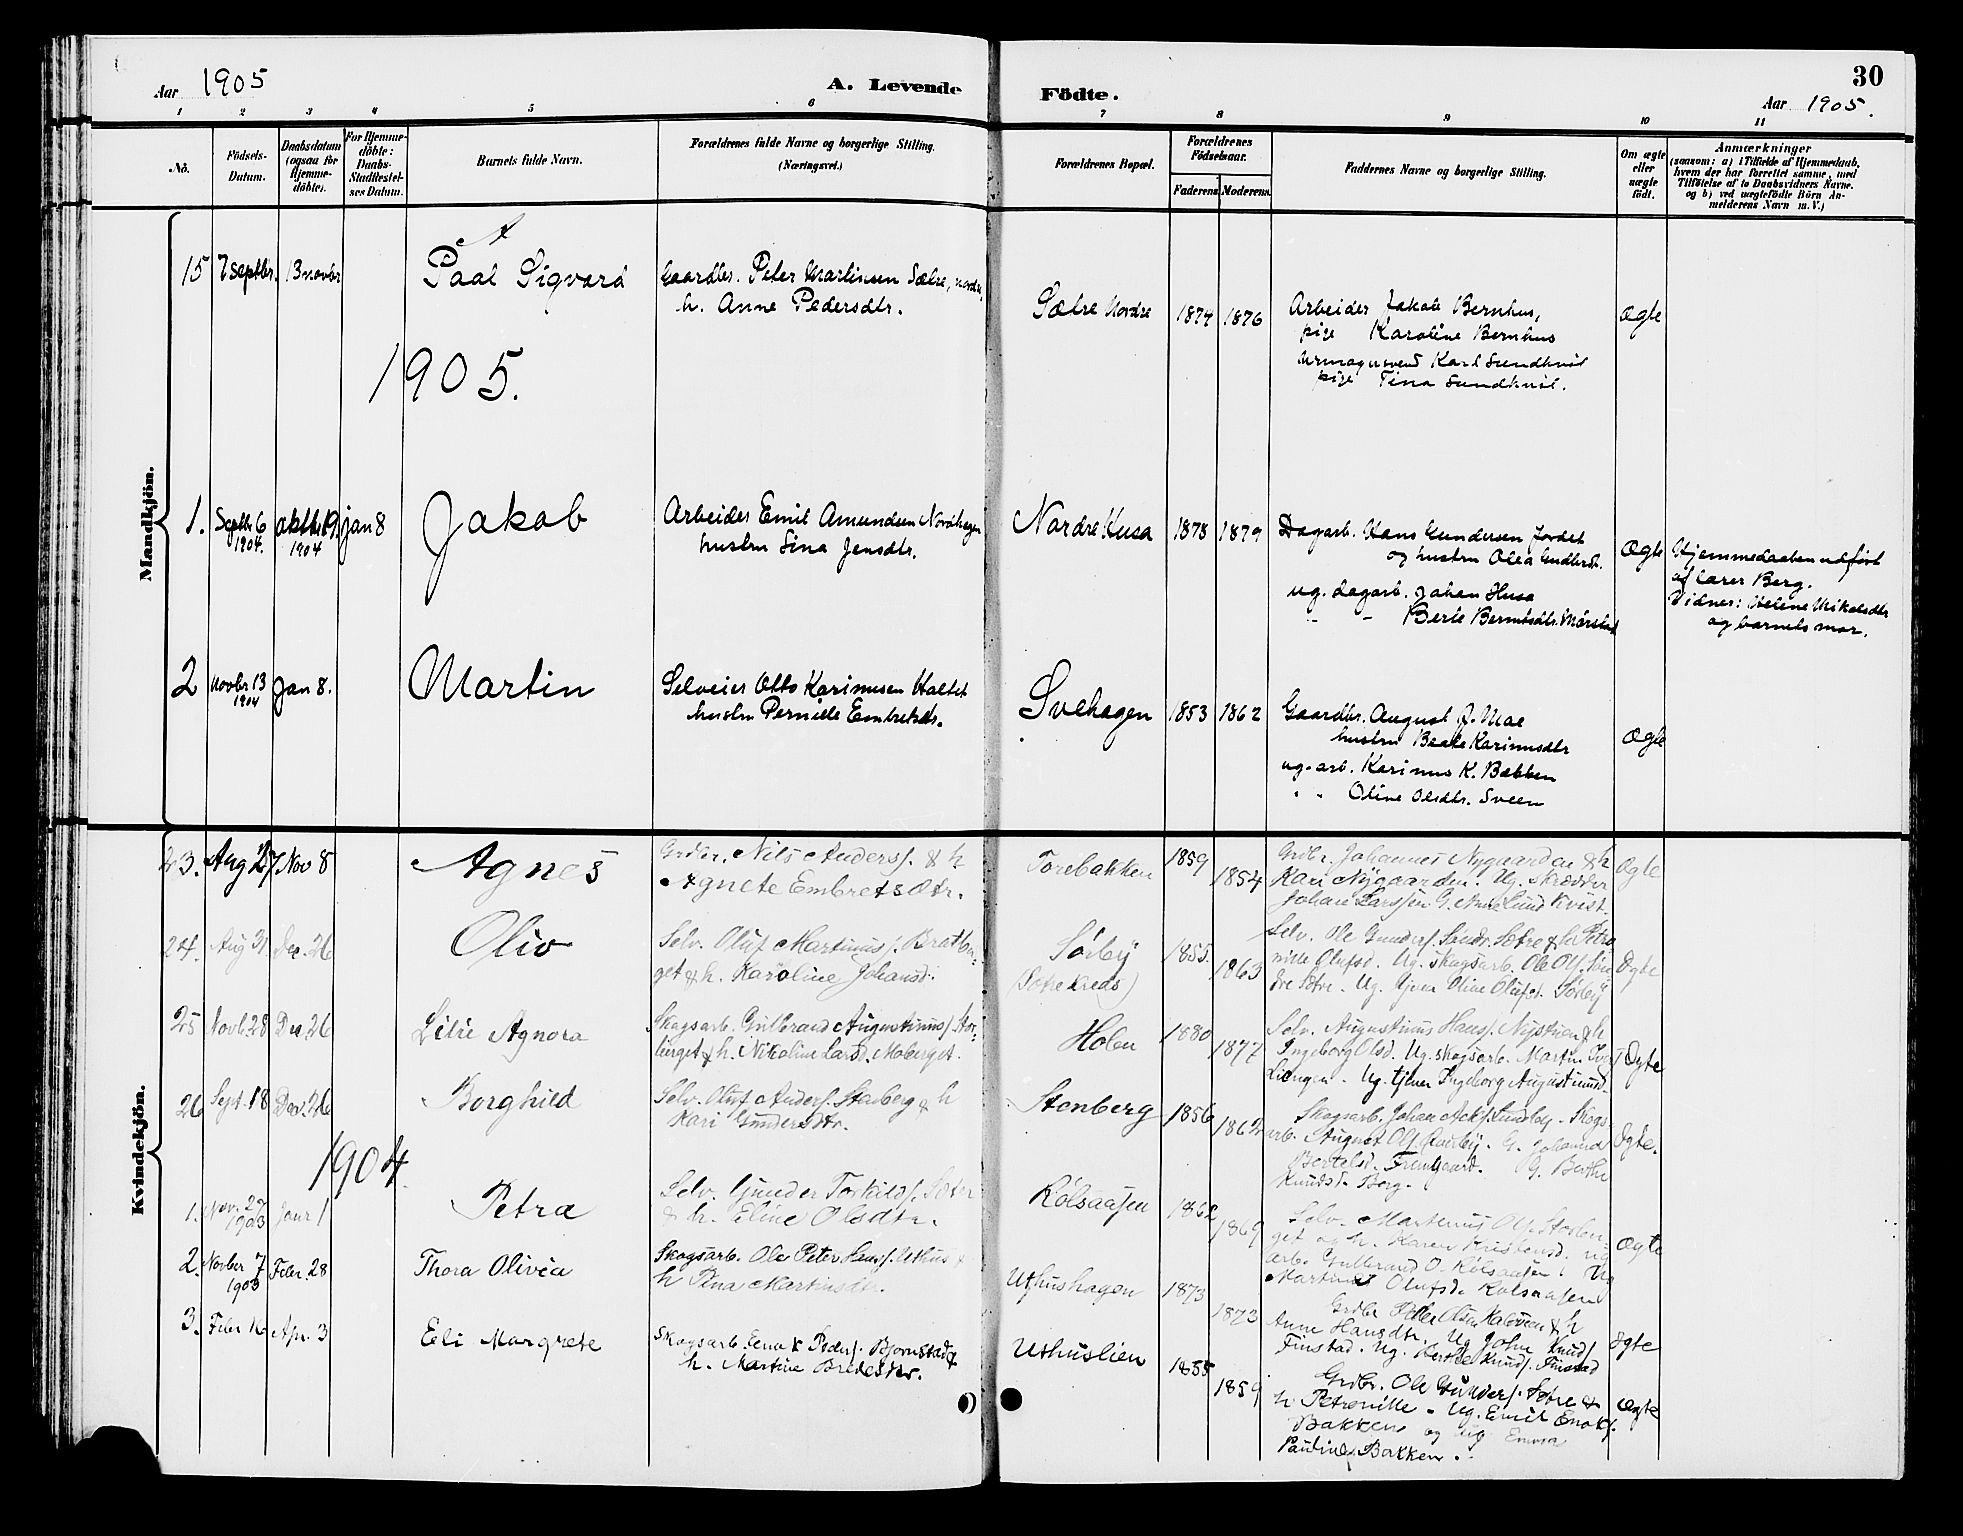 Aar 1905
A. Levende Födte.
30
Aar 1905.
1 2 3 4 5 6 7 8 9 10 11
No.
Födsels-
Datum.
Daabsdatum
(ogsaa for
Hjemme-
döbte).
For Hjemme-
döbte:
Daabs-
Stadfæstel-
ses Datum.
Barnets fulde Navn.
Forældrenes fulde Navne og borgerlige Stilling.
(Næringsvei.)
Forældrenes Bopæl.
Forældrenes
Födselsaar.
Faderens. Moderens.
Faddernes Navne og borgerlige Stilling.
Om ægte
eller
uægte
födt.
Anmærkninger
(saasom: a) i Tilfælde af Hjemmedaab,
hvem der har forrettet samme, med
Tilföielse af to Daabsvidners Navne.
og b) ved uægtefödte Börn An-
melderens Navn m. V.)
Mandkjön.
15 7 septbr. 13 novbr
Paal Sigvard
Gaardbr. Peter Martinsen Sætre, nordre,
h. Anne Pedersdtr.
Sætre Nordre
1874 1876
Arbeider Jakob Bernhus,
pige Karoline Bernhus
Urmagersvend Karl Sundkvist
pige Tina Sundkvist.
Ægte
1905.
1. Septbr 6
1904.
oktbr 19.
1904
jan 8
Jakob
Arbeider Emil Amundsen Nordhagen
hustru Lina Jensdtr.
Nordre Husa
1878 1879
Dagarb. Hans Gundersen Jordet
og hustru Olea
ug. dagarb. Johan Husa
" - Berte Berntsdtr. Mørstad
Ægte
Hjemmedaaben udført
af lærer Berg.
Vidner: Helene Mikalsdtr
og barnets mor.
2 Novbr 13
1904
Jan 8.
Martin
Selveier Otto Karinusen Haltet
hustru Pernille Embretsdtr.
Svehagen
1853 1862
Gaardbr. August J. Moe
hustru Beate Karinusdtr
ug. arb. Karinus K. Bakken
" " Oline Olsdtr. Sveen
Ægte
Kvindekjön.
23. Aug 27 Nov 8
Agnes
Grdbr. Nils Anders/. & h
Agnete Embretsdtr.
Torebakken
1859
1854
Grdbr. Johannes Nygaarden & h
Kari Nygaarden. Ug. skrædder
Johan Larssen G. Anne Lund Kvist.
Ægte
24. Aug 31 Dec. 26
Oliv
Selv. Oluf Martinus/. Bratber-
get & h. Karoline Johansd.
Sørby
(Søtre Kreds)
1855.
1863
Selv. Ole Gunders/. Søndr. Søtre & h Petro-
nille Olufsd. Ug. skogsarb. Ole Ols/. Søn-
dre Søtre. Ug. tjener Oline Olufsd. Sørby
Ægte
25 Novb. 28 Dec. 26
Lilie Agnora
Skogsarb. Gulbrand Augustinus/. Stor-
berget & h. Nikoline Larsd. Moberget.
Holen
1880
1877
Selv. Augustinus Hans/. Nystuen & h
Ingeborg Olsd. Ug. skogsarb. Martin
Liengen - Ug. tjener Ingeborg Augustinusd.
Ægte
26 Sept. 18 Dec. 26
Borghild
Selv. Oluf Anders/. Stenberg & h
Kari Gundersdtr.
Stenberg
1856
1862
Skogsarb. Johan Lundby - Skogs-
arb. August Ols/. G. Johanne
Bertelsd. G. Berthe
Knudsd. Berg.
Ægte.
1904.
1. Nov. 27
1903
Janr 1
Petra
Selv. Gunder Torkilds/. Søtre
& h. Eline Olsdtr.
Rolsaasen
1862
1869
Selv. Martinus Ols. Storber-
get og h. Karen Kristensd. ug
arb. Gulbrand O. Rolsaasen. Ug
Martine Olufsd. Rolsaasen
Ægte
2. Novber 7
1903
Febr. 28
Thora Olivia
Skogsarb. Ole Peter Hans/. Uthus &
h Pina Martinsdtr.
Uthushagen
1873
1873
Grdbr Peder Olsen & h
Anne Hansdtr. Ug John Knuds/
Finstad. Ug. Berthe Knuds/. Finstad
Ægte
3. Febr 16 Apr. 3
Eli Margrete
Skogsarb. Enok Peders/. Bjørnstad &
h. Martine Bredesdtr.
Uthuslien
1855
1859
Grdbr. Ole Gunders/. Søtre &
h Petronille - Ug. Emil Enoks/.
Bakken og Ug Emma
Pauline Bakken.
Ægte